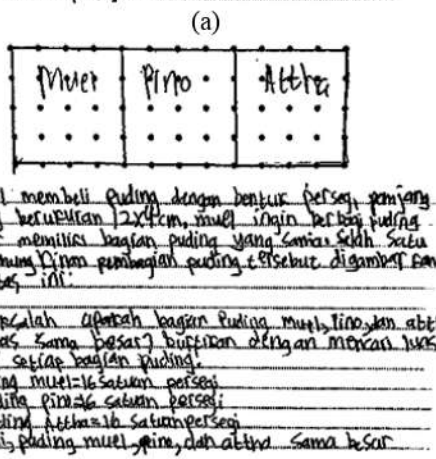 (a)
Muel Pino Attha
membeli puding dengan bentuk persegi panjang
berukuran 12x4cm, muel ingin berbagi puding
memiliki bagian puding yang sama. Salah satu
pembagian puding tersebut digambar
ini:
apakah bagian puding muel, Pino, dan
sama besar? buktikan dengan mencari luas
setiap bagian puding.
muel=16 satuan persegi
Pino=16 satuan persegi
Attha=16 satuan persegi
puding muel, pino, dan attha sama besar